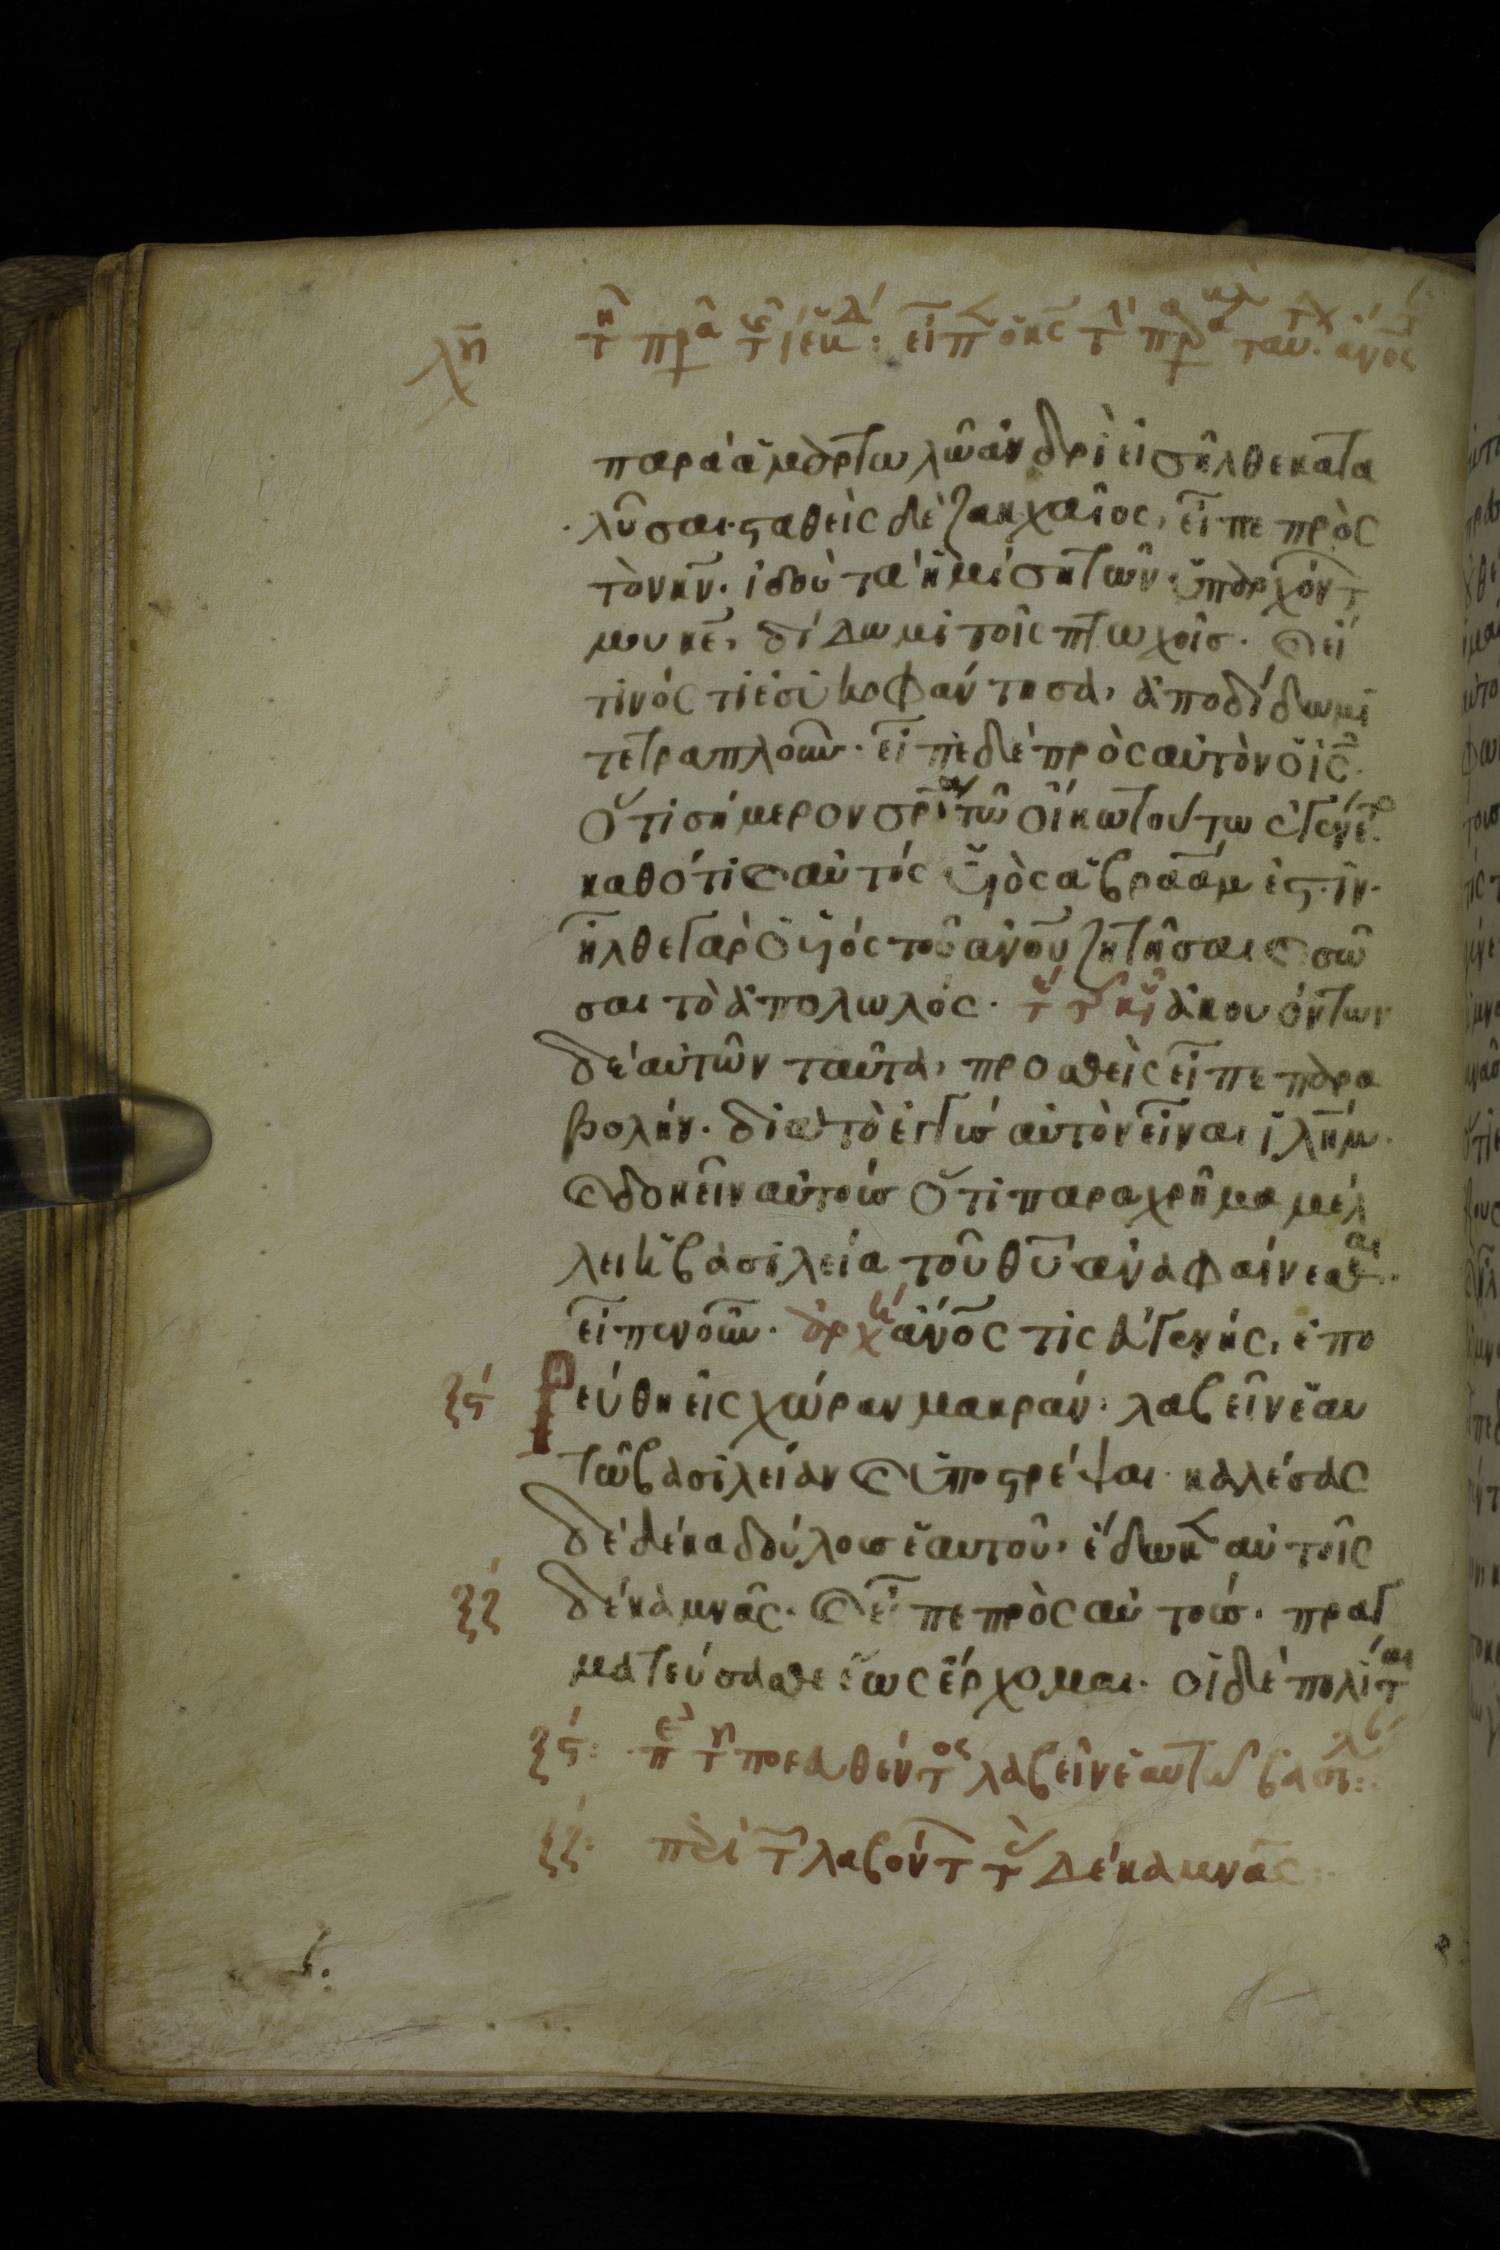 παρὰ ἁμαρτωλῶ ἀνδρὶ εἰσῆλθε κατα
λῦσαι· σταθεὶς δὲ ζακχαῖος, εἶπε πρὸς
τὸν κν̄· ἰδοὺ τὰ ἡμίση τῶν ὑπαρχόντ
μου κε̄, δίδωμι τοῖς πτωχοῖσ· καὶ εἴ
τινός τι ἐσυκοφάντησα, ἀποδίδωμι
τετραπλοῦν· εἶπε δὲ πρὸς αὐτὸν ὁ ις̄·
ὅτι σήμερον σρ̄ία τῶ οἴκω τούτω ἐγένετο
καθότι καὶ αὐτός υἱὸς ἀβραάμ ἐστιν·
ἦλθε γὰρ ὁ υἱός τοῦ ανου ζητῆσαι καὶ σῶ
σαι τὸ ἀπολωλός· ἀκουόντων
δὲ αὐτῶν ταῦτα, προσθεὶς εἶπε παρα
βολήν· διὰ τὸ ἐγγὺσ αὐτὸν εἶναι ιλημ·
καὶ δοκεῖν αὐτοὺσ ὅτι παραχρῆμα μέλ
λει ἡ βασιλεία τοῦ θυ ἀναφαίνεσθαι·
εἶπεν οὖν· ἀρχ ανος τὶς εὐγενής, ἐπο
ξϛ ρεύθη εἰς χώραν μακράν· λαβεῖν ἑαυ
τῶ βασιλείαν καὶ ὑποστρέψαι· καλέσας
δὲ δέκα δούλουσ ἑαυτοῦ, ἔδωκεν αὐτοῖς
ξζ δέκα μνᾶς· καὶ εἶπε πρὸς αὐτούσ· πραγ
ματεύσασθε ἕως ἔρχομαι· οἱ δὲ πολῖται
ξϛ: π τ πορευθέντος λαβεῖν ἑαυτῶ βασιλ:
ξζ: περὶ τ λαβόντ τ δέκα μνᾶς: